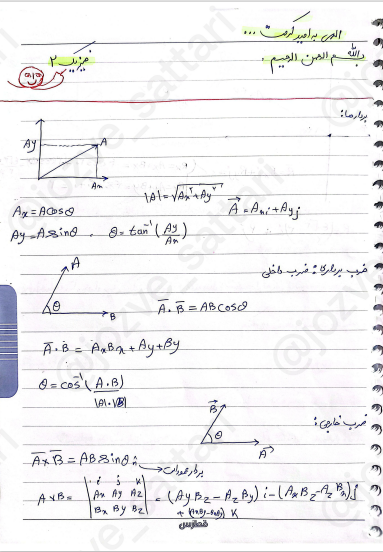 الهی به امید کرمت ...
بسم الله الرحمن الرحیم.
فیزیک ۲
بردارها:
Ay
A
Ax
|A| = √Ax² + Ay²
A = Axi + Ayj
Ax = A cosθ
Ay = A sinθ . θ = tan⁻¹ (Ay/Ax)
ضرب برداری: ضرب داخلی
A
θ
B
A . B = AB cosθ
A . B = AxBx + Ay + By
θ = cos⁻¹ (A.B / |A|.|B|)
ضرب خارجی:
B
θ
A
A × B = AB sinθ n̂
بردار عمود بر آن
A × B = | i j k | = (AyBz - AzBy) i - (AxBz - AzBx) j
Ax Ay Az
Bx By Bz
+ (AxBy - BxAy) K
@jozve_sattari